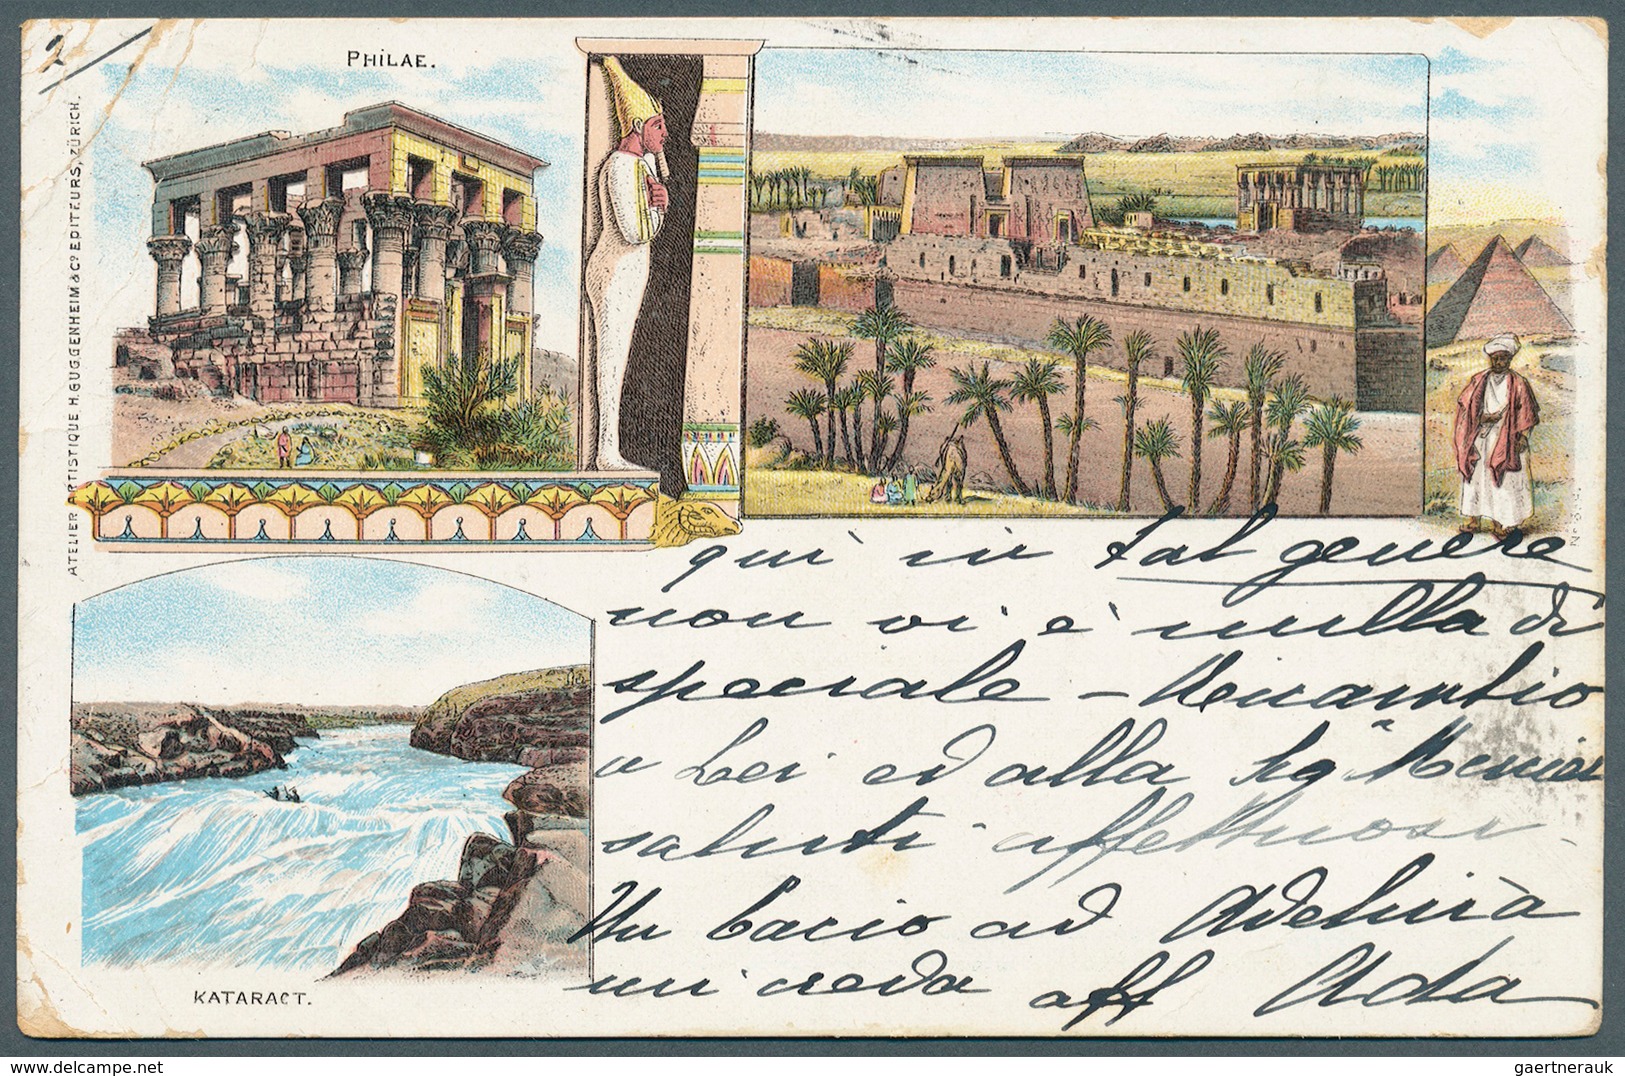 2
PHILAE.
ATELIER ARTISTIQUE H. GUGGENHEIM & Cº EDITEURS, ZÜRICH.
qui in tal genere
non vi è nulla di
speciale –
a Lei ed alla Sigª
saluti affettuosi –
Un bacio ad Adelina
mi creda aff Ada
KATARACT.
gaertnerauk